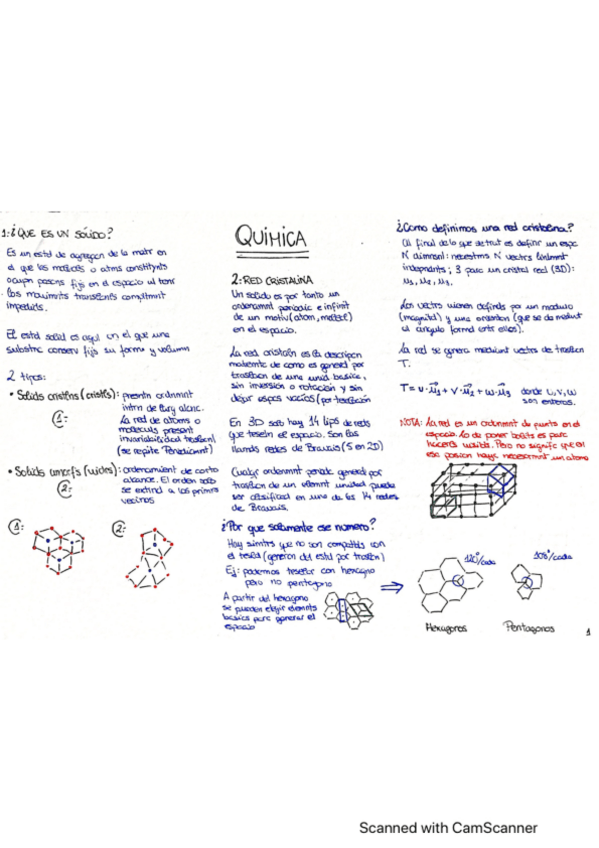 QUIMICA
1: ¿QUE ES UN SÓLIDO?
Es un estad de agregacion de la matr en
el que las molecls o atms constitynts
ocupn posicns fijs en el espacio al tenr
los movimnts translacnls compltmnt
impedids.
El estd solid es aqul en el que una
substnc conserv fijo su forma y volumn
2 tipos:
• Solids cristlns (cristls): presntn ordnmnt
intrn de larg alcnc.
①: La red de atoms o
moleculs present
invariabilidad traslacnl
(se repite Periodicamnt)
• Solids amorfs (vidrs): ordenamiento de corto
②: alcance. El orden solo
se extind a los primrs
vecinos
①: ②:
2: RED CRISTALINA
Un solido es por tanto un
ordenamnt periodic e infinit
de un motiv (atom, molecl)
en el espacio.
La red cristaln es la descripcn
matemtc de como es generad por
traslacion de una unid basica,
sin inversion o rotación y sin
dejar espcs vacios (por teselación
En 3D solo hay 14 tips de reds
que teseln el espacio. Son las
llamds redes de Bravais (5 en 2D)
Cualqr ordenmnt periodc generad por
traslacion de un elemnt unidad puede
ser clasificad en una de las 14 redes
de Bravais.
¿Por que solamente ese numero?
Hay simtrs que no son compatbls con
el teselad (generacion del estd por traslacion)
Ej: podemos teselar con hexagono
pero no pentagono
A partir del hexagono
se pueden elegir elemnts
basics para generar el
espacio
¿Como definimos una red cristalina?
Al final de lo que se trat es definir un espc
N dimnsnl: necesitms N vectrs linlmnt
independnts; 3 para un cristal real (3D):
u₁, u₂, u₃.
Los vectrs vienen definids por un modulo
(magnitd) y una orientacion (que se da mediant
el angulo formad entre ellos).
La red se genera mediant vectrs de traslacion
T.
T = u·u₁ + v·u₂ + w·u₃ donde u, v, w
son enteros.
NOTA: La red es un ordenmnt de punts en el
espacio. Lo de poner bolits es para
hacerls visibls. Pero no signific que en
esa posicion haya necesarimnt un atomo
120°/cada
108°/cada
Hexagonos
Pentagonos
1
Scanned with CamScanner